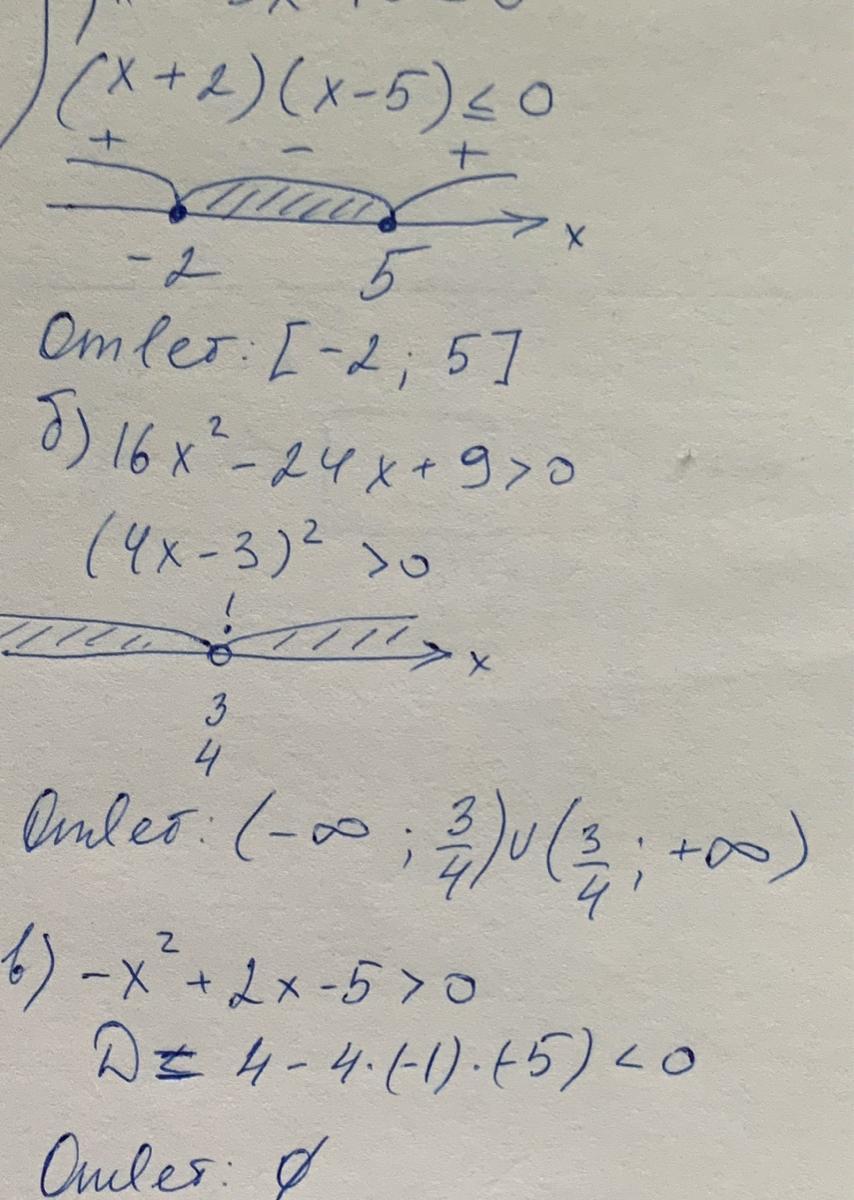 (x+2)(x-5) ≤ 0
+ - +
-2 5 x
Ответ: [-2; 5]
б) 16x² - 24x + 9 > 0
(4x-3)² > 0
!
x
3
4
Ответ: (-∞; 3/4) ∪ (3/4; +∞)
в) -x² + 2x - 5 > 0
D = 4 - 4·(-1)·(-5) < 0
Ответ: ∅